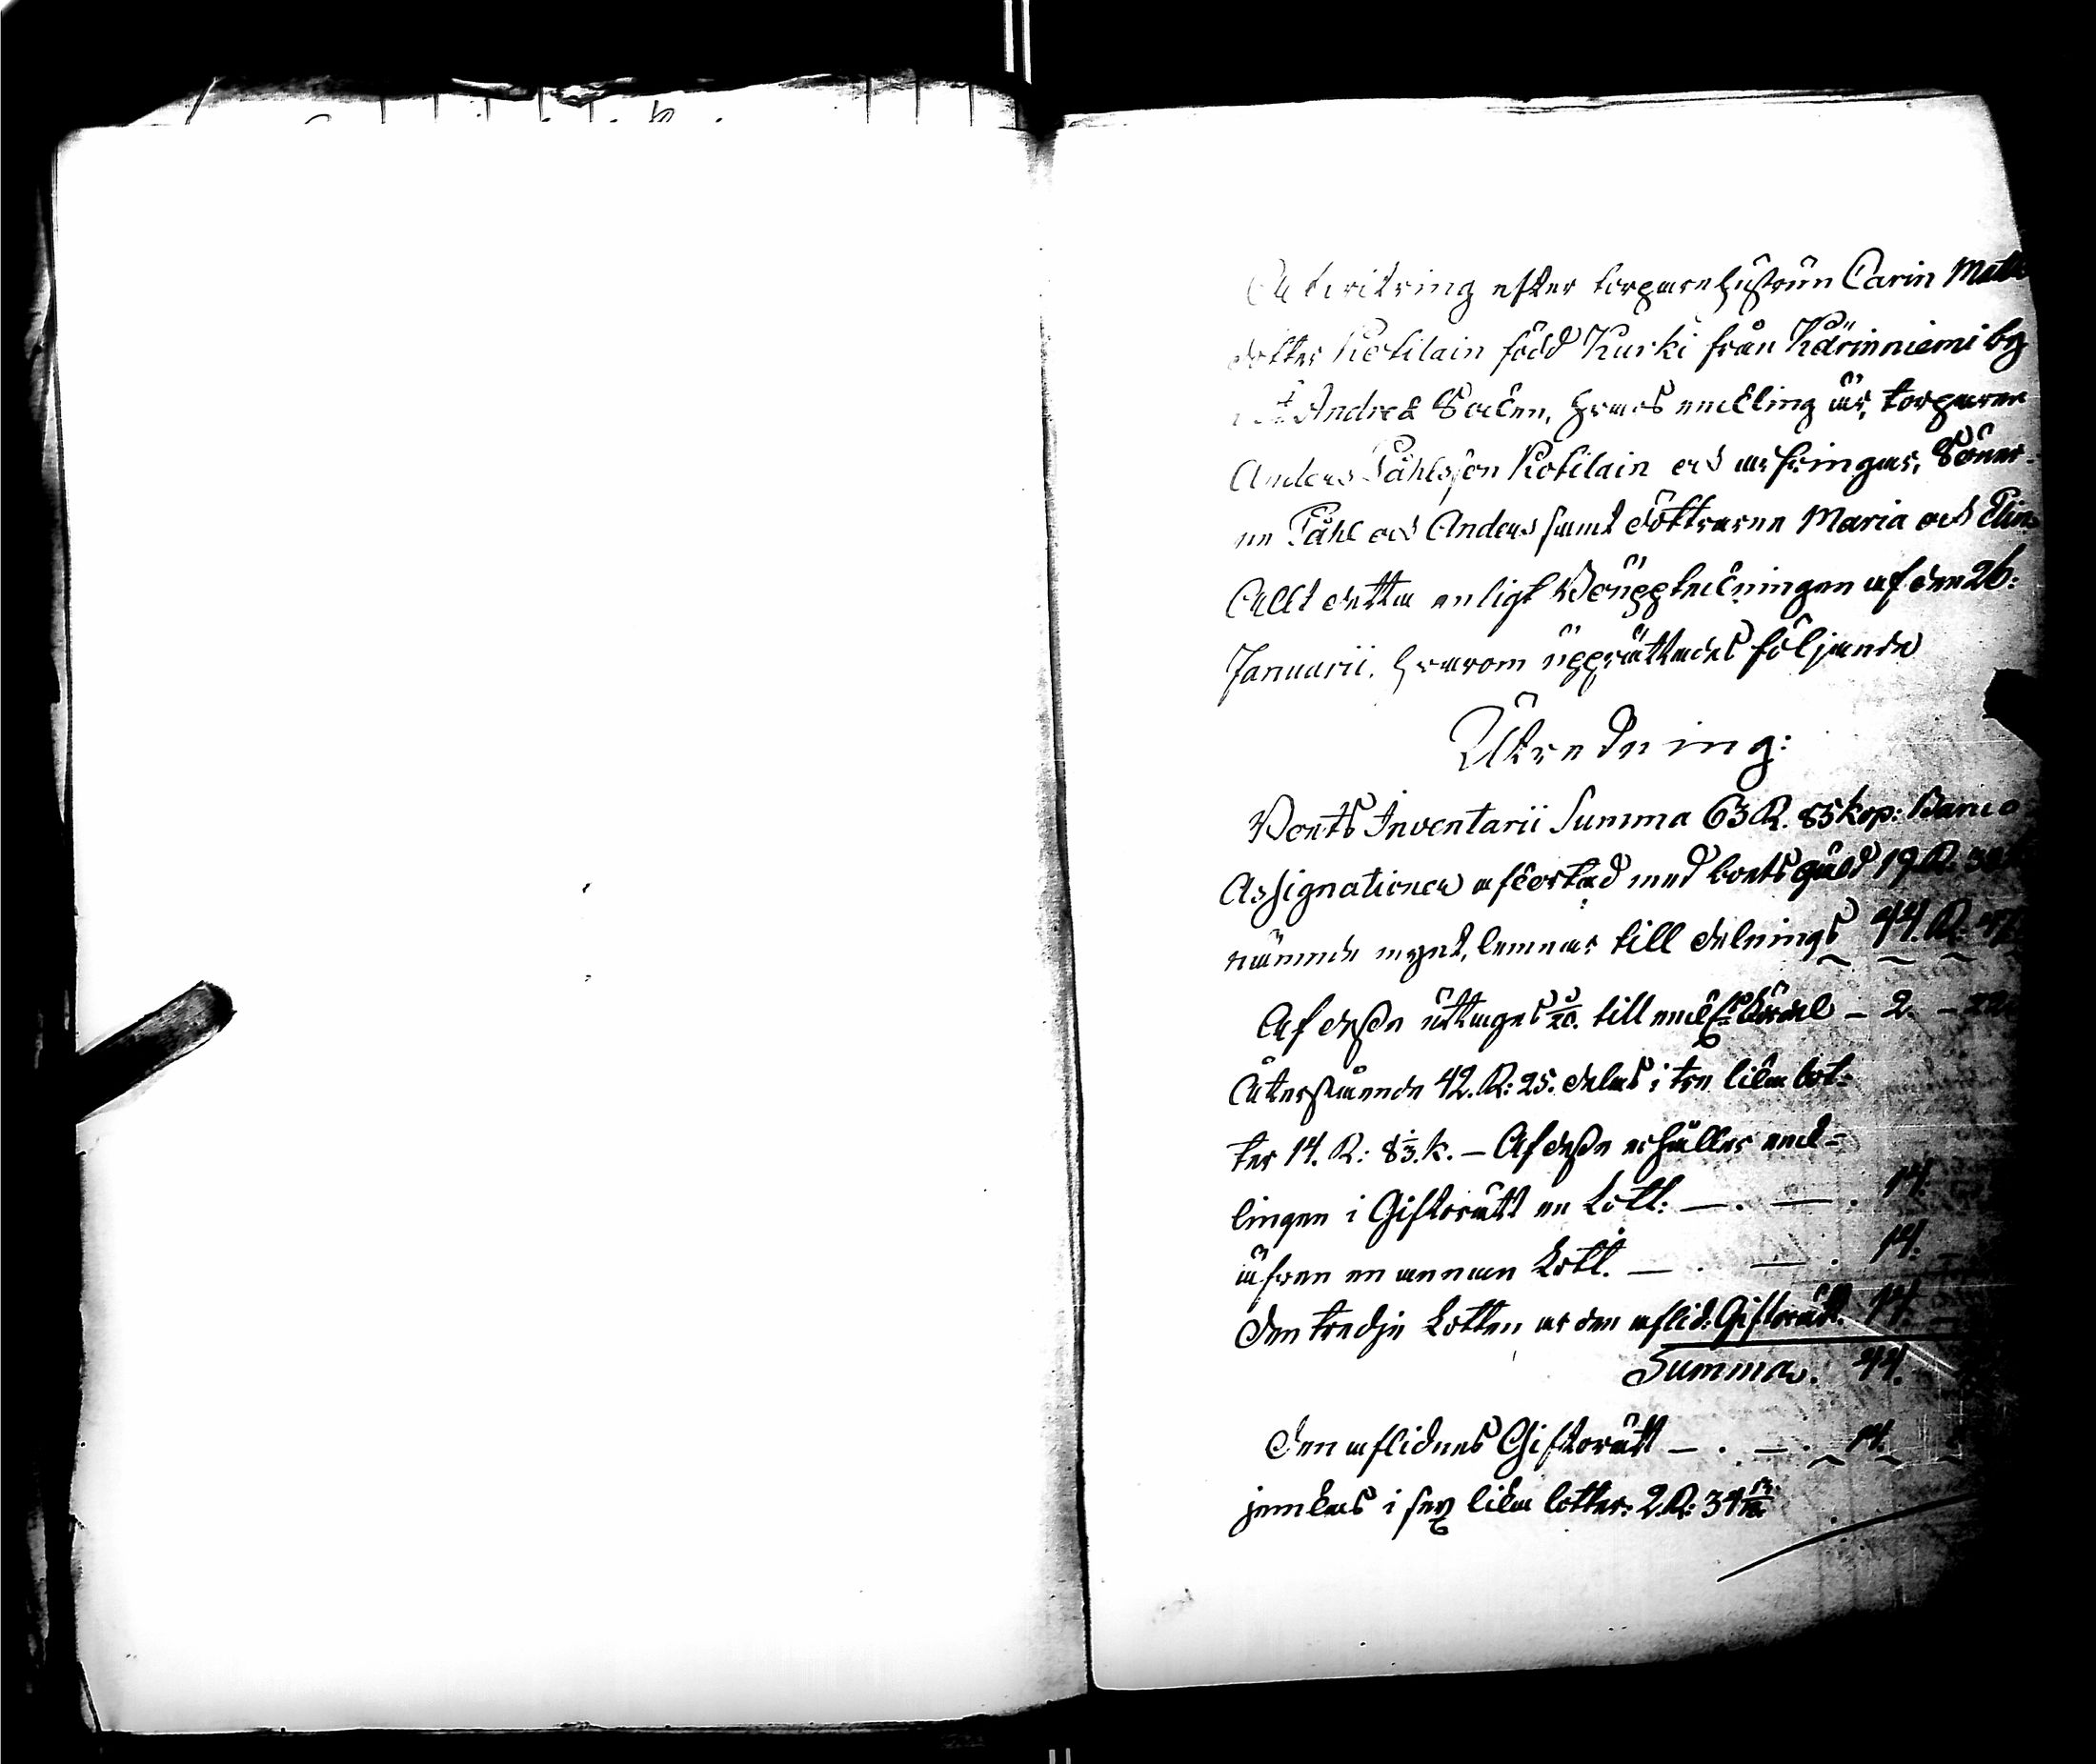 Arfskiftning efter torparehustrun Carin Matts
dotter Kotilain född Kurki från Kärinniemi by
i St Andreæ Socken, hvars enckling är, torparen
Anders Påhlsson Kotilain och arfvingar, Söner-
ne Påhl och Anders samt döttrarne Maria och Elin
Allt detta enligt Bouppteckningen af den 26:
Januarii. hvarom upprättades följande
Utredning:
Boets Inventarii Summa 63 R. 85 kop: Banco
Assignationer afkortad med boets gäld 19 R: 38
nämnde mynt, lemnar till delnings 44. R: 47
Af dessa uttages 1/20. till enckl: fördel – 2. – 22
Återstående 42. R: 25. delas i tre lika lot-
ter 14. R: 8 1/3. k. – Af dessa erhåller enck-
lingen i Giftorätt en Lott: – . – . 14.
äfven en annan Lott. – . – . 14:
den tredje Lotten är den aflid: Giftorätt. 14.
Summa. 44.
den aflidnes Giftorätt – . – . 14.
jemkas i sex lika lotter: 2. R: 34